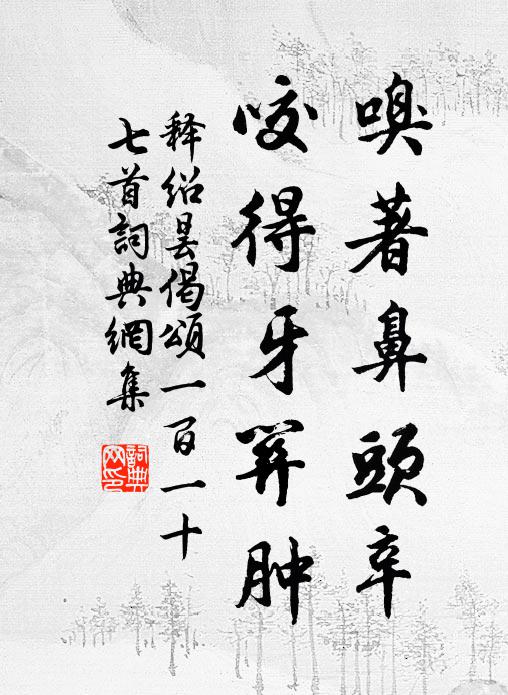 嗅著鼻頭辛
咬得牙𢇁肿
释绍昙偈頌一百一十
七首詞典網集
詞典网印